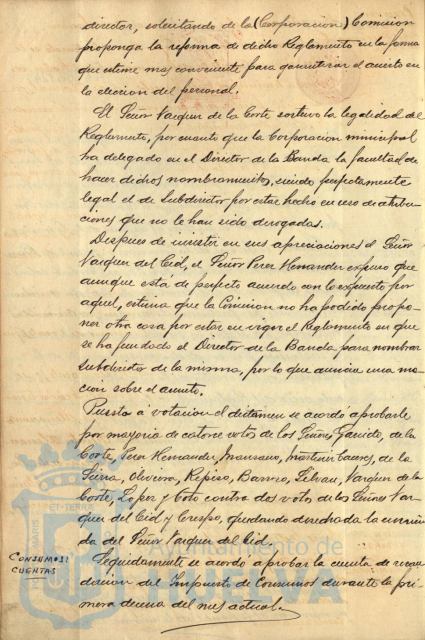 director, solicitando de la (Corporacion) Comision
proponga la reforma de dicho Reglamento en la forma
que estime mas conveniente para garantizar el acierto en
la eleccion del personal.
El Señor Vazquez de la Corte sostuvo la legalidad del
Reglamento, por cuanto que la Corporacion municipal
ha delegado en el Director de la Banda la facultad de
hacer dichos nombramientos, siendo perfectamente
legal el de Subdirector por estar hecho en uso de atribu-
ciones que no le han sido derogadas.
Despues de insistir en sus apreciaciones el Señor
Vazquez del Cid, el Señor Perez Hernandez expuso que
aunque está de perfecto acuerdo con lo expuesto por
aquel, estima que la Comision no ha podido propo-
ner otra cosa por estar en vigor el Reglamento en que
se ha fundado el Director de la Banda para nombrar
subdirector de la misma, por lo que anuncia una mo-
cion sobre el asunto.
Puesto á votacion el dictamen se acordó aprobarlo
por mayoria de catorce votos de los Señores Garrido, de la
Corte, Perez Hernandez, Manzano, Martin Cazorez, de la
Sierra, Oliveira, Repiso, Barrio, Vazquez de la
Corte, Lopez y Coto contra dos votos de los Señores Vaz-
quez del Cid y Crespo, quedando desechada la enmien-
da del Señor Vazquez del Cid.
CONSUMOS:
CUENTAS
Seguidamente se acordó aprobar la cuenta de recau-
dacion del Impuesto de Consumos durante la pri-
mera decena del mes actual.
Ayuntamiento de
HUELVA